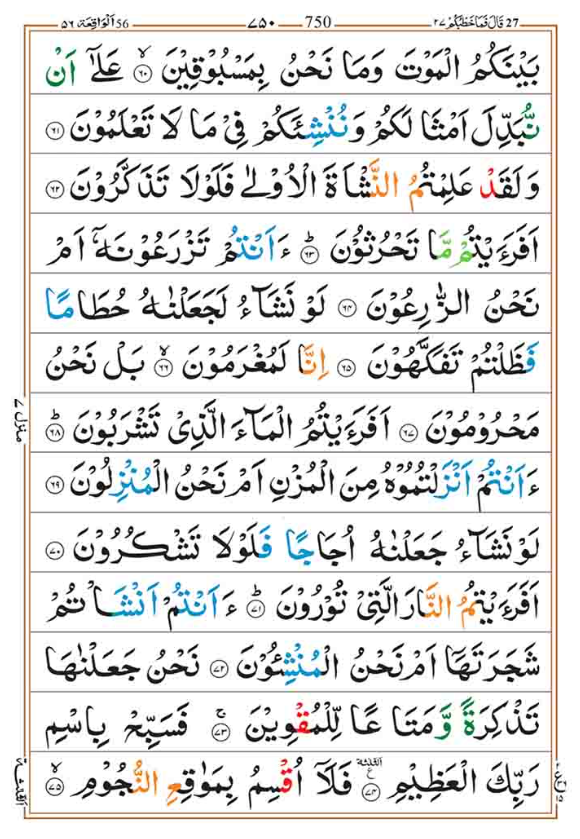 27 قَالَ فَمَا خَطْبُكُمْ ٢٧ 750 ٧٥٠ 56 اَلْوَاقِعَة ٥٦
بَيْنَكُمُ الْمَوْتَ وَمَا نَحْنُ بِمَسْبُوْقِيْنَ ۙ۝۶۰ عَلٰۤی اَنْ
نُّبَدِّلَ اَمْثَالَكُمْ وَنُنْشِئَكُمْ فِیْ مَا لَا تَعْلَمُوْنَ ۝۶۱
وَلَقَدْ عَلِمْتُمُ النَّشْاَةَ الْاُوْلٰی فَلَوْلَا تَذَكَّرُوْنَ ۝۶۲
اَفَرَءَيْتُمْ مَّا تَحْرُثُوْنَ ؕ۝۶۳ ءَاَنْتُمْ تَزْرَعُوْنَهٗۤ اَمْ
نَحْنُ الزّٰرِعُوْنَ ۝۶۴ لَوْ نَشَآءُ لَجَعَلْنٰهُ حُطَامًا
فَظَلْتُمْ تَفَكَّهُوْنَ ۝۶۵ اِنَّا لَمُغْرَمُوْنَ ۙ۝۶۶ بَلْ نَحْنُ
مَحْرُوْمُوْنَ ۝۶۷ اَفَرَءَيْتُمُ الْمَآءَ الَّذِیْ تَشْرَبُوْنَ ؕ۝۶۸
ءَاَنْتُمْ اَنْزَلْتُمُوْهُ مِنَ الْمُزْنِ اَمْ نَحْنُ الْمُنْزِلُوْنَ ۝۶۹
لَوْ نَشَآءُ جَعَلْنٰهُ اُجَاجًا فَلَوْلَا تَشْكُرُوْنَ ۝۷۰
اَفَرَءَيْتُمُ النَّارَ الَّتِیْ تُوْرُوْنَ ؕ۝۷۱ ءَاَنْتُمْ اَنْشَاْتُمْ
شَجَرَتَهَاۤ اَمْ نَحْنُ الْمُنْشِئُوْنَ ۝۷۲ نَحْنُ جَعَلْنٰهَا
تَذْكِرَةً وَّمَتَاعًا لِّلْمُقْوِيْنَ ۚ۝۷۳ فَسَبِّحْ بِاسْمِ
رَبِّكَ الْعَظِيْمِ ۝۷۴ فَلَاۤ اُقْسِمُ بِمَوٰقِعِ النُّجُوْمِ ۙ۝۷۵
منزل ٧